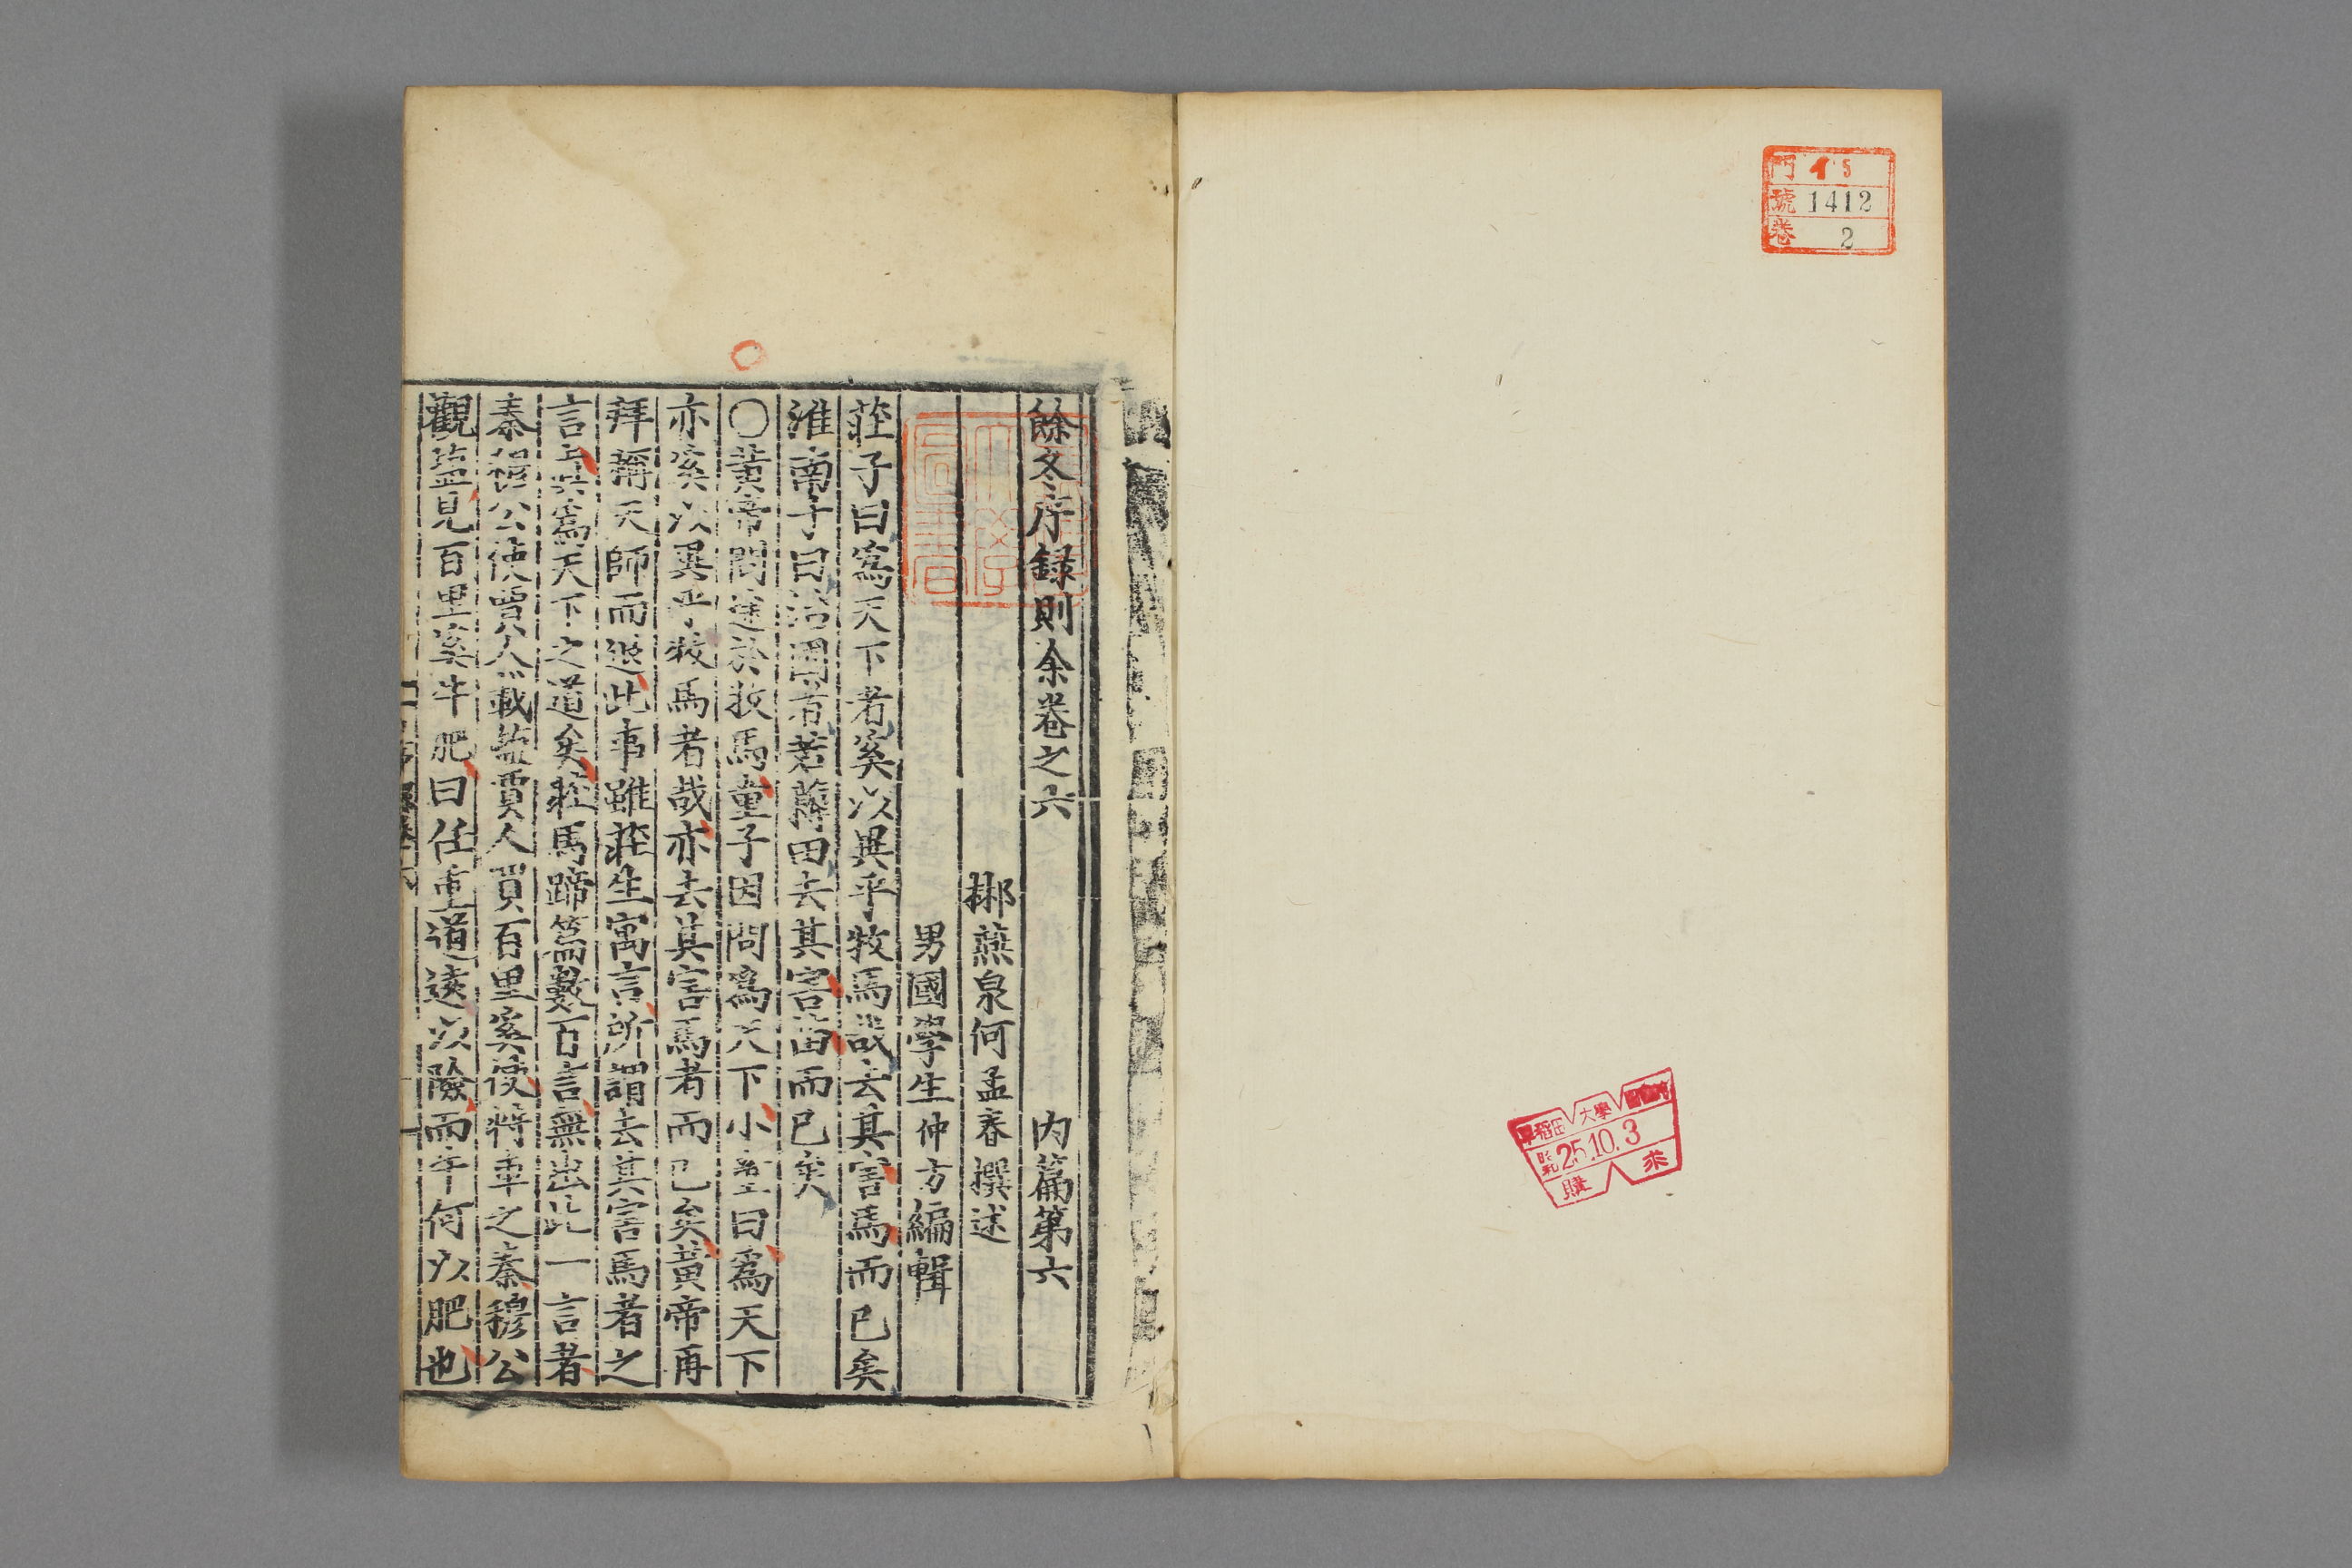 門 イ 5
號 1412
卷 2
早稻田大學圖書
昭和 25.10.3
購求
餘冬序録則余卷之六 内篇第六
郴燕泉何孟春撰述
男國學生仲方編輯
莊子曰爲天下者奚以異乎牧馬哉去其害馬而已矣
淮南子曰治國者若薅田去其害苗而已矣
〇黃帝問塗於牧馬童子因問爲天下小童曰爲天下
亦奚以異乎牧馬者哉亦去其害馬者而已矣黃帝再
拜稱天師而退此事雖莊生寓言所謂去其害馬者之
言其爲天下之道矣莊馬蹄篇數百言無出此一言者
秦穆公使賈人載塩賈人買百里奚使將車之秦穆公
觀塩見百里奚牛肥曰任重道遠以險而牛何以肥也